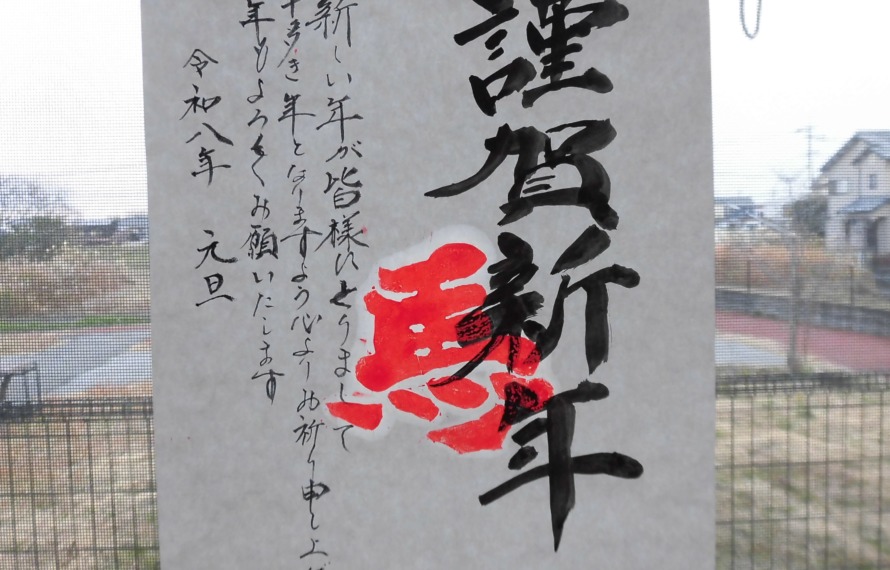 謹賀新年
馬
新しい年が皆様にとりまして
幸多き年となりますよう心よりお祈り申し上げ
年もよろしくお願いいたします
令和八年 元旦